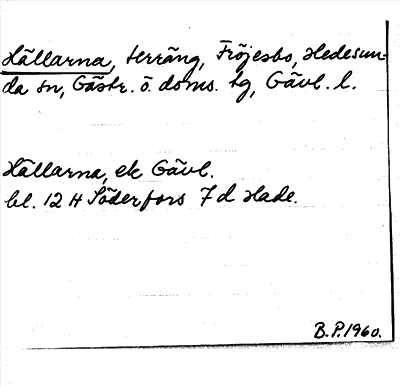 Hällarna, terräng, Fröjesbo, Hedesun-
da sn, Gästr. ö. doms. tg, Gävl. l.
Hällarna, ek Gävl.
bl. 12 H Söderfors 7 d Hade.
B.P. 1960.